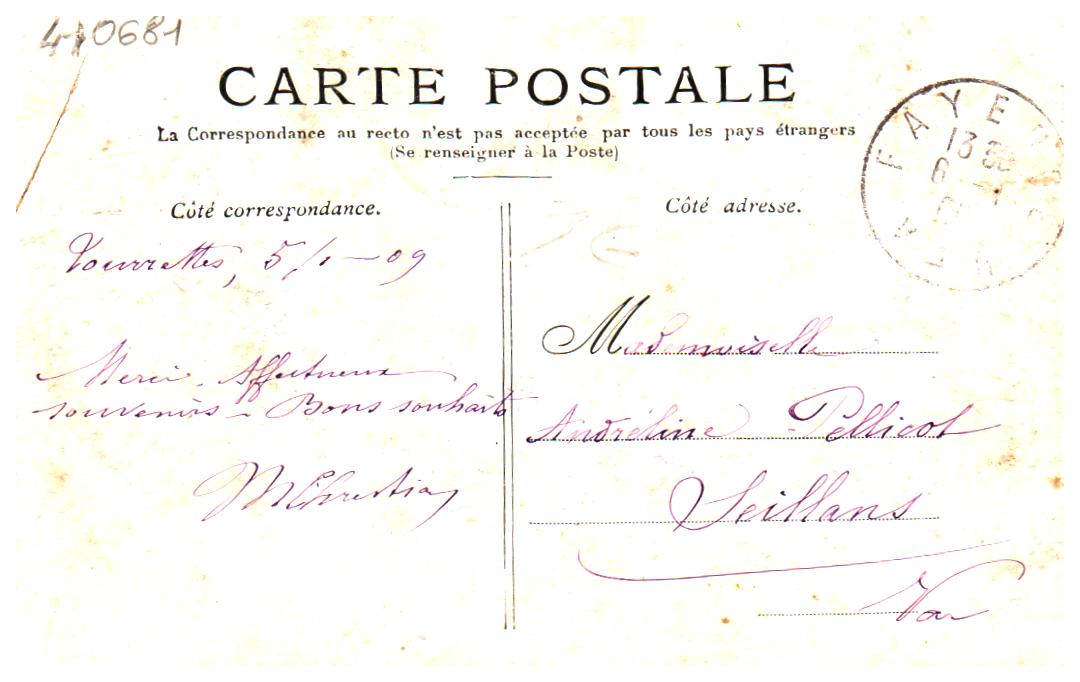 410681
CARTE POSTALE
La Correspondance au recto n'est pas acceptée par tous les pays étrangers
(Se renseigner à la Poste)
Côté correspondance.
Côté adresse.
FAYENCE
13 30
6
VAR
Tourrettes, 5/1-09
Merci. Affectueux
souvenirs - Bons souhaits
MChrestian
Mademoiselle
Andréline Pellicot
Seillans
Var